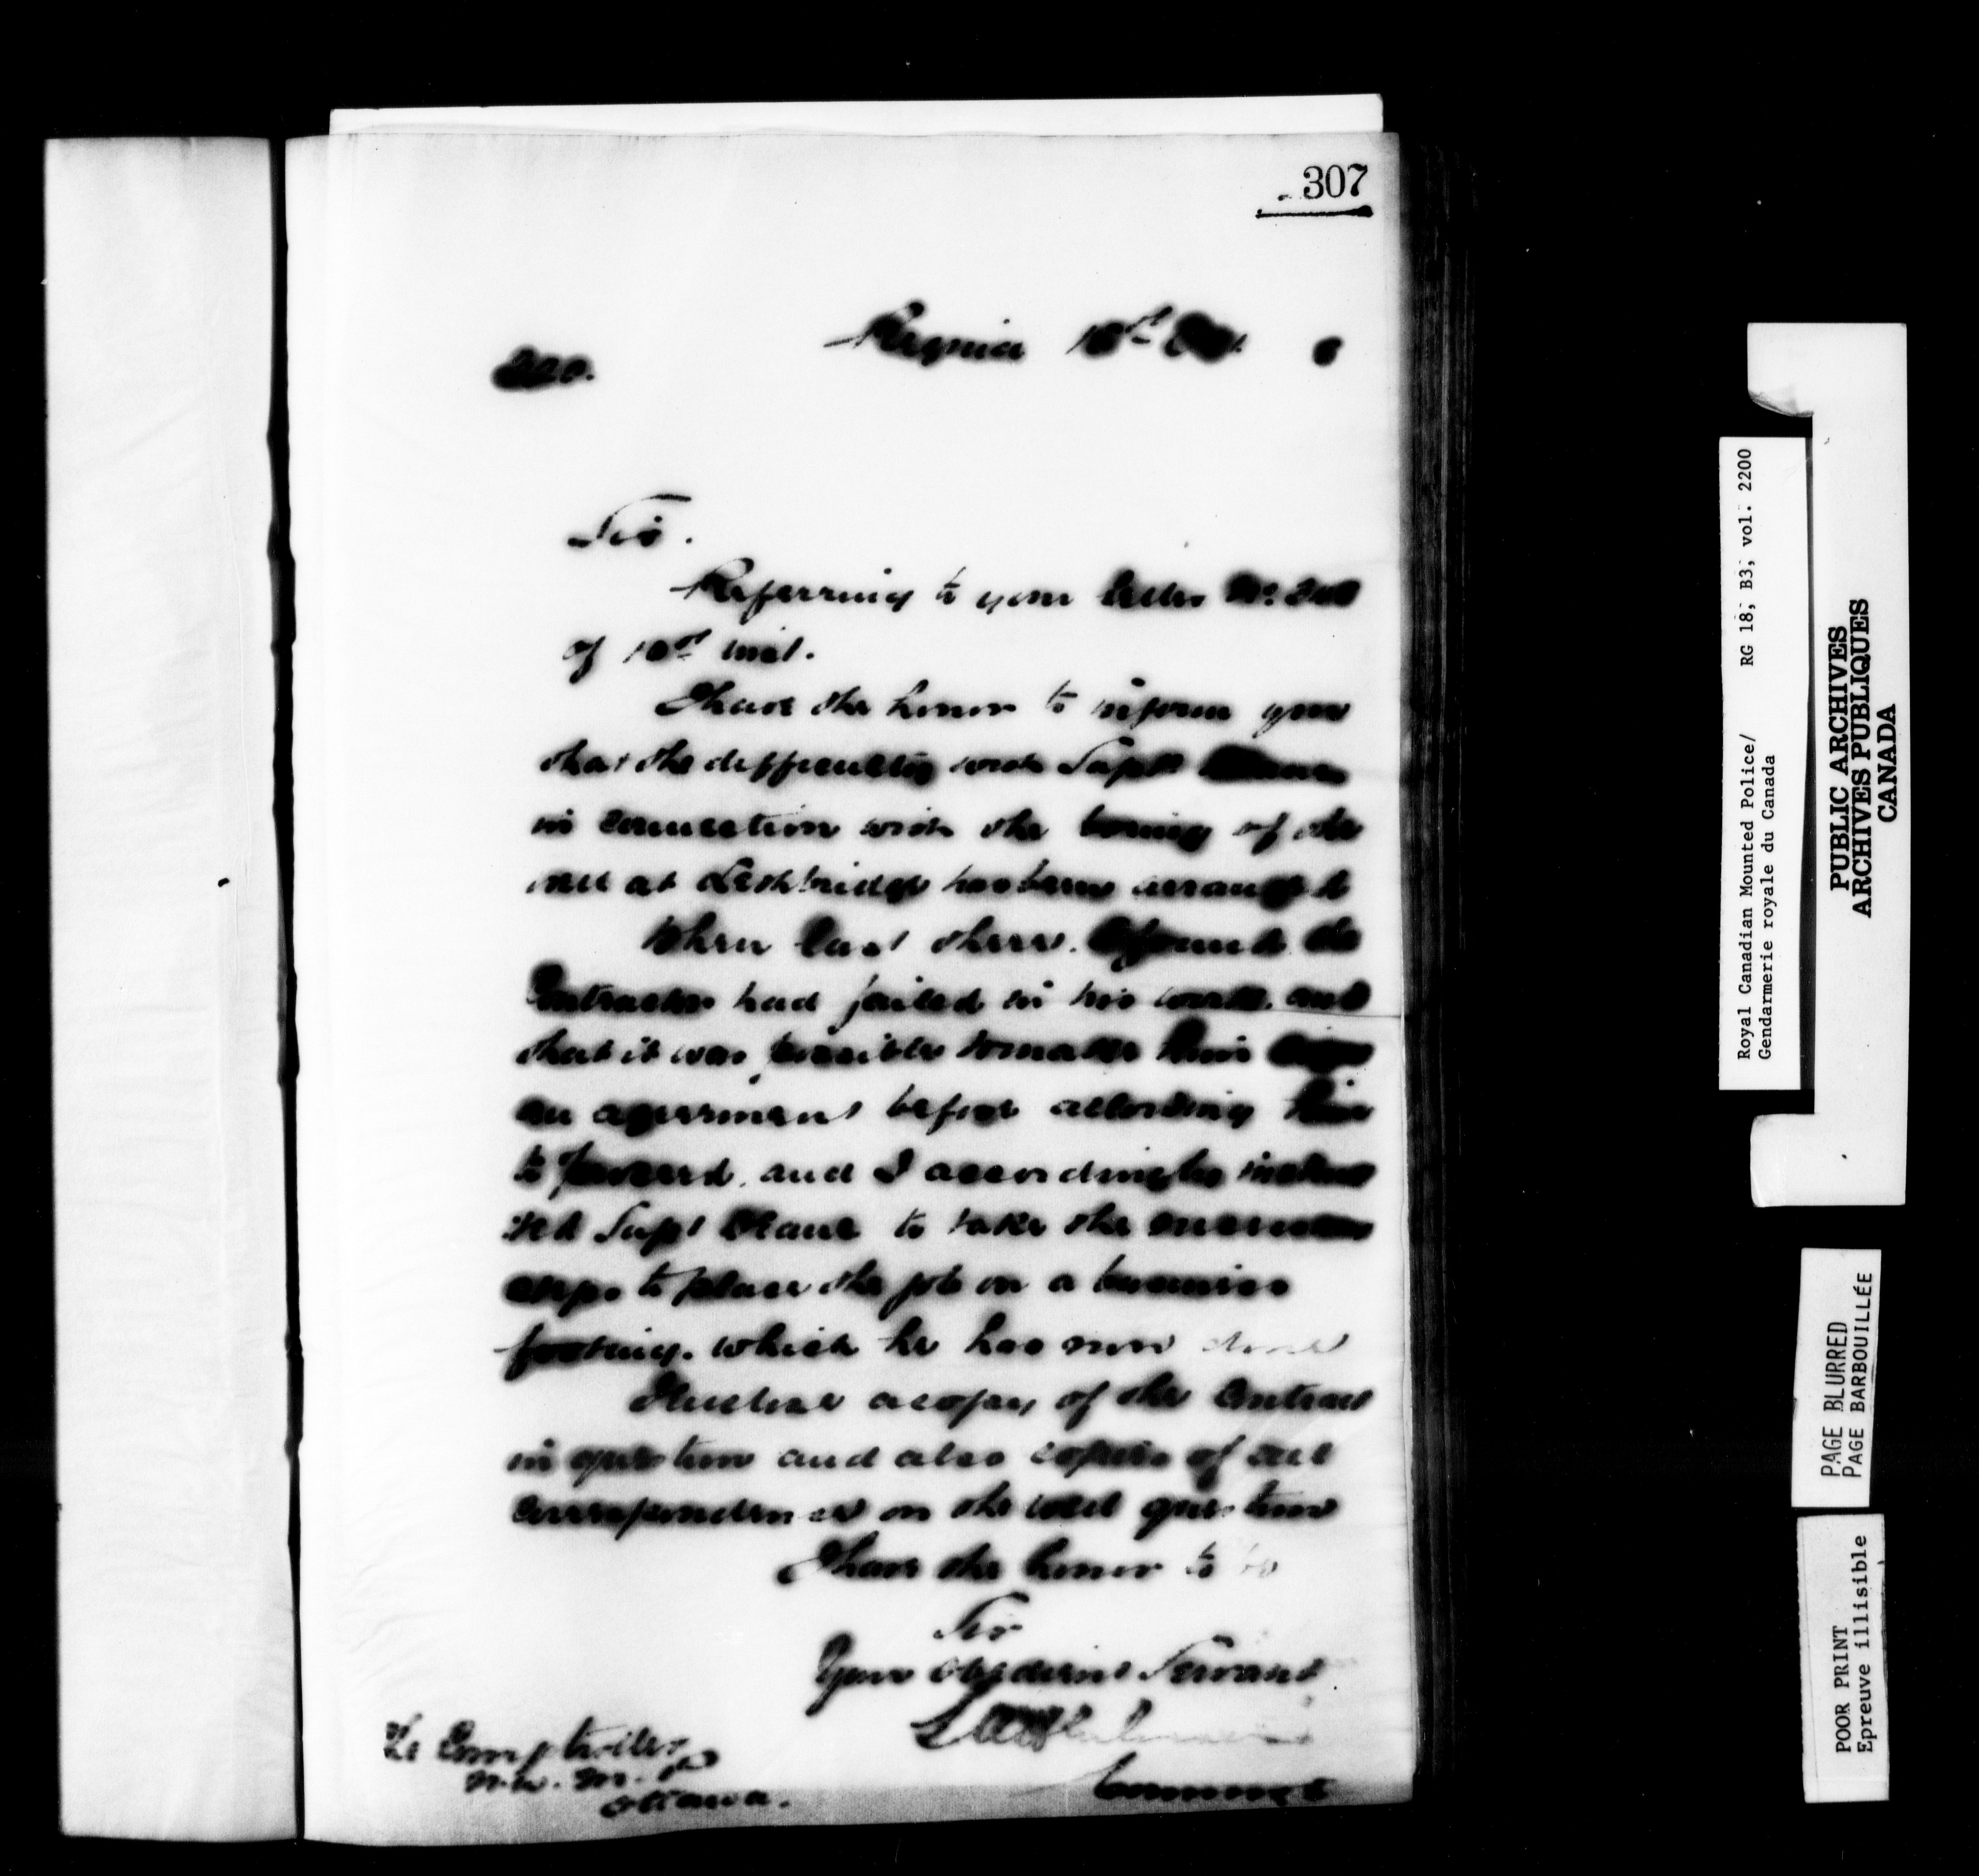 307
Regina 18th Oct. 6
220.
Sir.
Referring to your letter No.
of 10th inst.
I have the honor to inform you
that the difficulty with Supt
in connection with the boring of the
well at Lethbridge has been arranged
When last there. I found the
Contractor had failed in his work. and
that it was possible to make him sign
an agreement before allowing him
to proceed. and I accordingly instruc
ted Supt Deane to take the necessary
steps to place the job on a business
footing. which he has now done
I enclose a copy of the Contract
in question and also copies of all
correspondence on the well question
I have the honor to be
Sir
Your obedient Servant
Commnr
The Comptroller
N.W.M.P
Ottawa.
Royal Canadian Mounted Police/ RG 18, B3, vol. 2200
Gendarmerie royale du Canada
PUBLIC ARCHIVES
ARCHIVES PUBLIQUES
CANADA
PAGE BLURRED
PAGE BARBOUILLÉE
POOR PRINT
Epreuve illisible